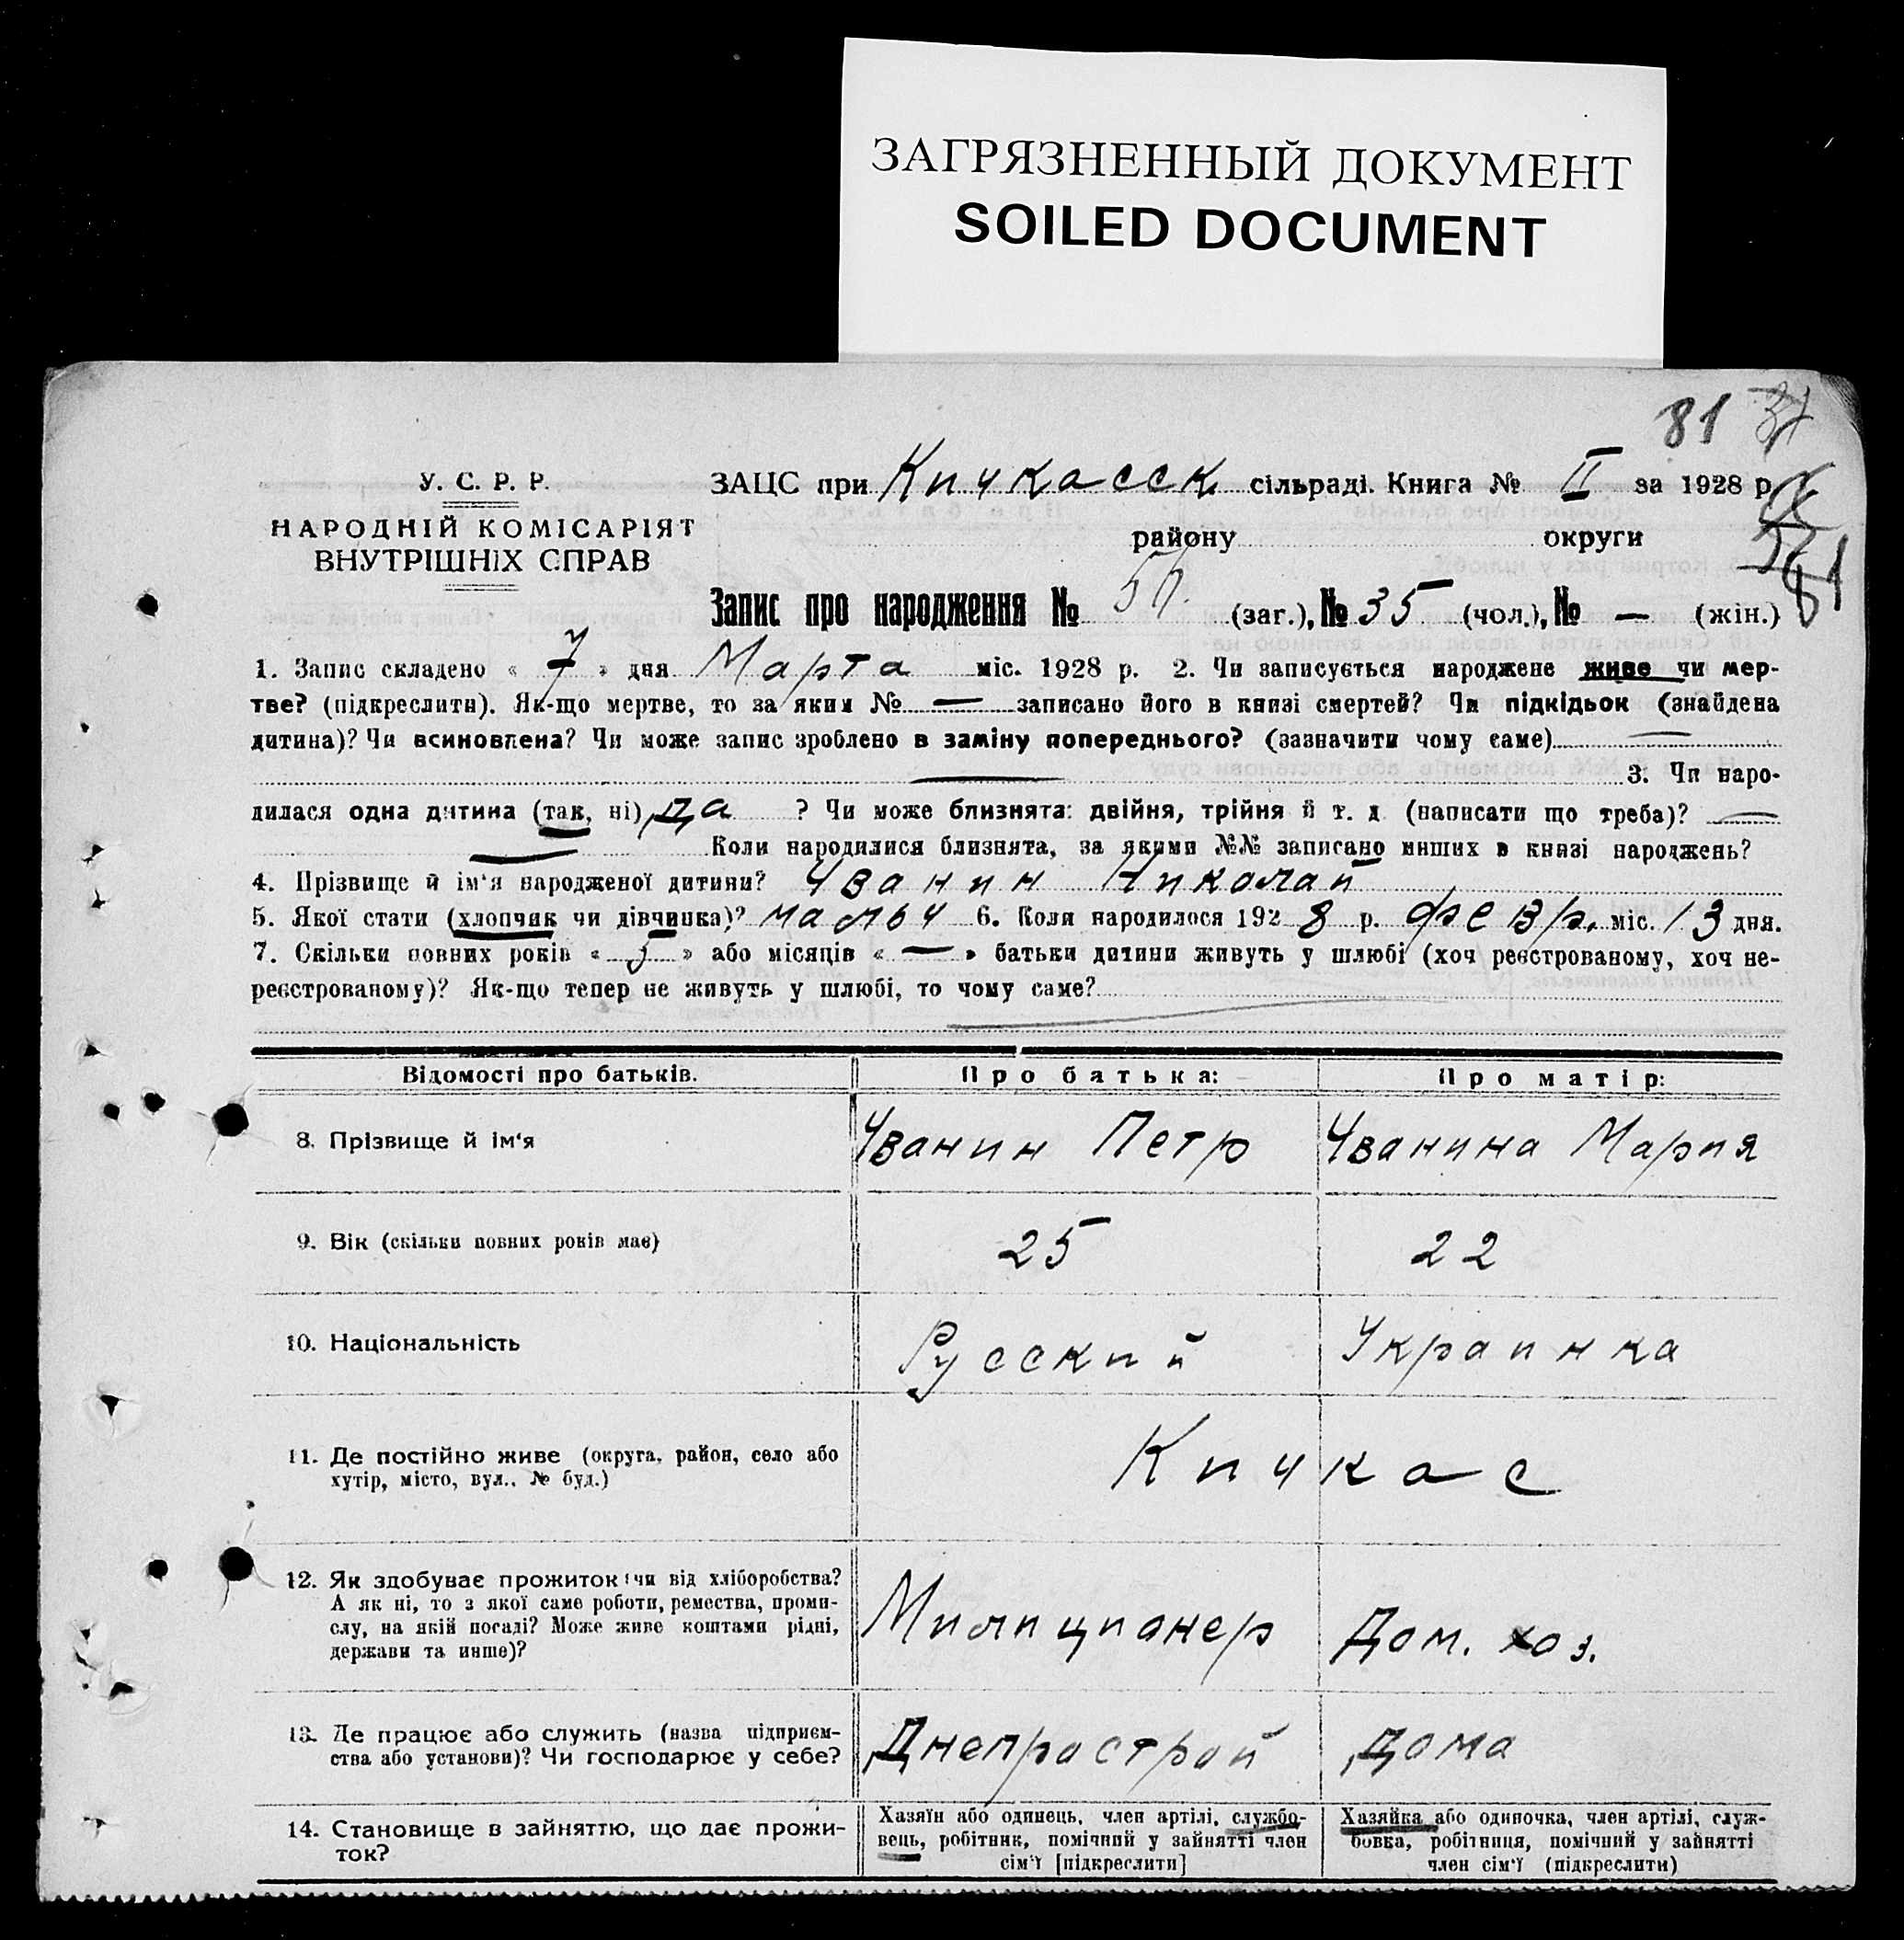 ЗАГРЯЗНЕННЫЙ ДОКУМЕНТ
SOILED DOCUMENT
81
У. С. Р. Р.
НАРОДНІЙ КОМІСАРІЯТ
ВНУТРІШНІХ СПРАВ
ЗАЦС при Кичкасск. сільраді. Книга № II за 1928 р.
району округи
61
Запис про народження № (заг.), № 35 (чол.), № — (жін.)
1. Запис складено « 7 » дня Марта міс. 1928 р. 2. Чи записується народжене живе чи мер-
тве? (підкреслити). Як-що мертве, то за яким № — записано його в книзі смертей? Чи підкідьок (знайдена
дитина)? Чи всиновлена? Чи може запис зроблено в заміну попереднього? (зазначити чому саме) —
— 3. Чи наро-
дилася одна дитина (так, ні) да ? Чи може близнята: двійня, трійня й т. д. (написати що треба)? —
— Коли народилися близнята, за якими №№ записано инших в книзі народжень?
4. Прізвище й ім'я народженої дитини? Чванин Николай
5. Якої стати (хлопчик чи дівчинка)? мальч 6. Коли народилося 1928 р. февр. міс. 13 дня.
7. Скільки повних років « 5 » або місяців « — » батьки дитини живуть у шлюбі (хоч реєстрованому, хоч не-
реєстрованому)? Як-що тепер не живуть у шлюбі, то чому саме? —
Відомості про батьків. Про батька: Про матір:
8. Прізвище й ім'я Чванин Петр Чванина Мария
9. Вік (скільки повних років має) 25 22
10. Національність Русский Украинка
11. Де постійно живе (округа, район, село або
хутір, місто, вул., № буд.) Кичкас
12. Як здобуває прожиток: чи від хліборобства?
А як ні, то з якої саме роботи, ремества, проми-
слу, на якій посаді? Може живе коштами рідні,
держави та инше)? Милиционер Дом. хоз.
13. Де працює або служить (назва підприєм-
ства або установи)? Чи господарює у себе? Днепрострой дома
14. Становище в зайняттю, що дає прожи-
ток?
Хазяїн або одинець, член артілі, службо-
вець, робітник, помічний у зайнятті член
сім'ї [підкреслити]
Хазяйка або одиночка, член артілі, служ-
бовка, робітниця, помічний у зайнятті
член сім'ї (підкреслити)